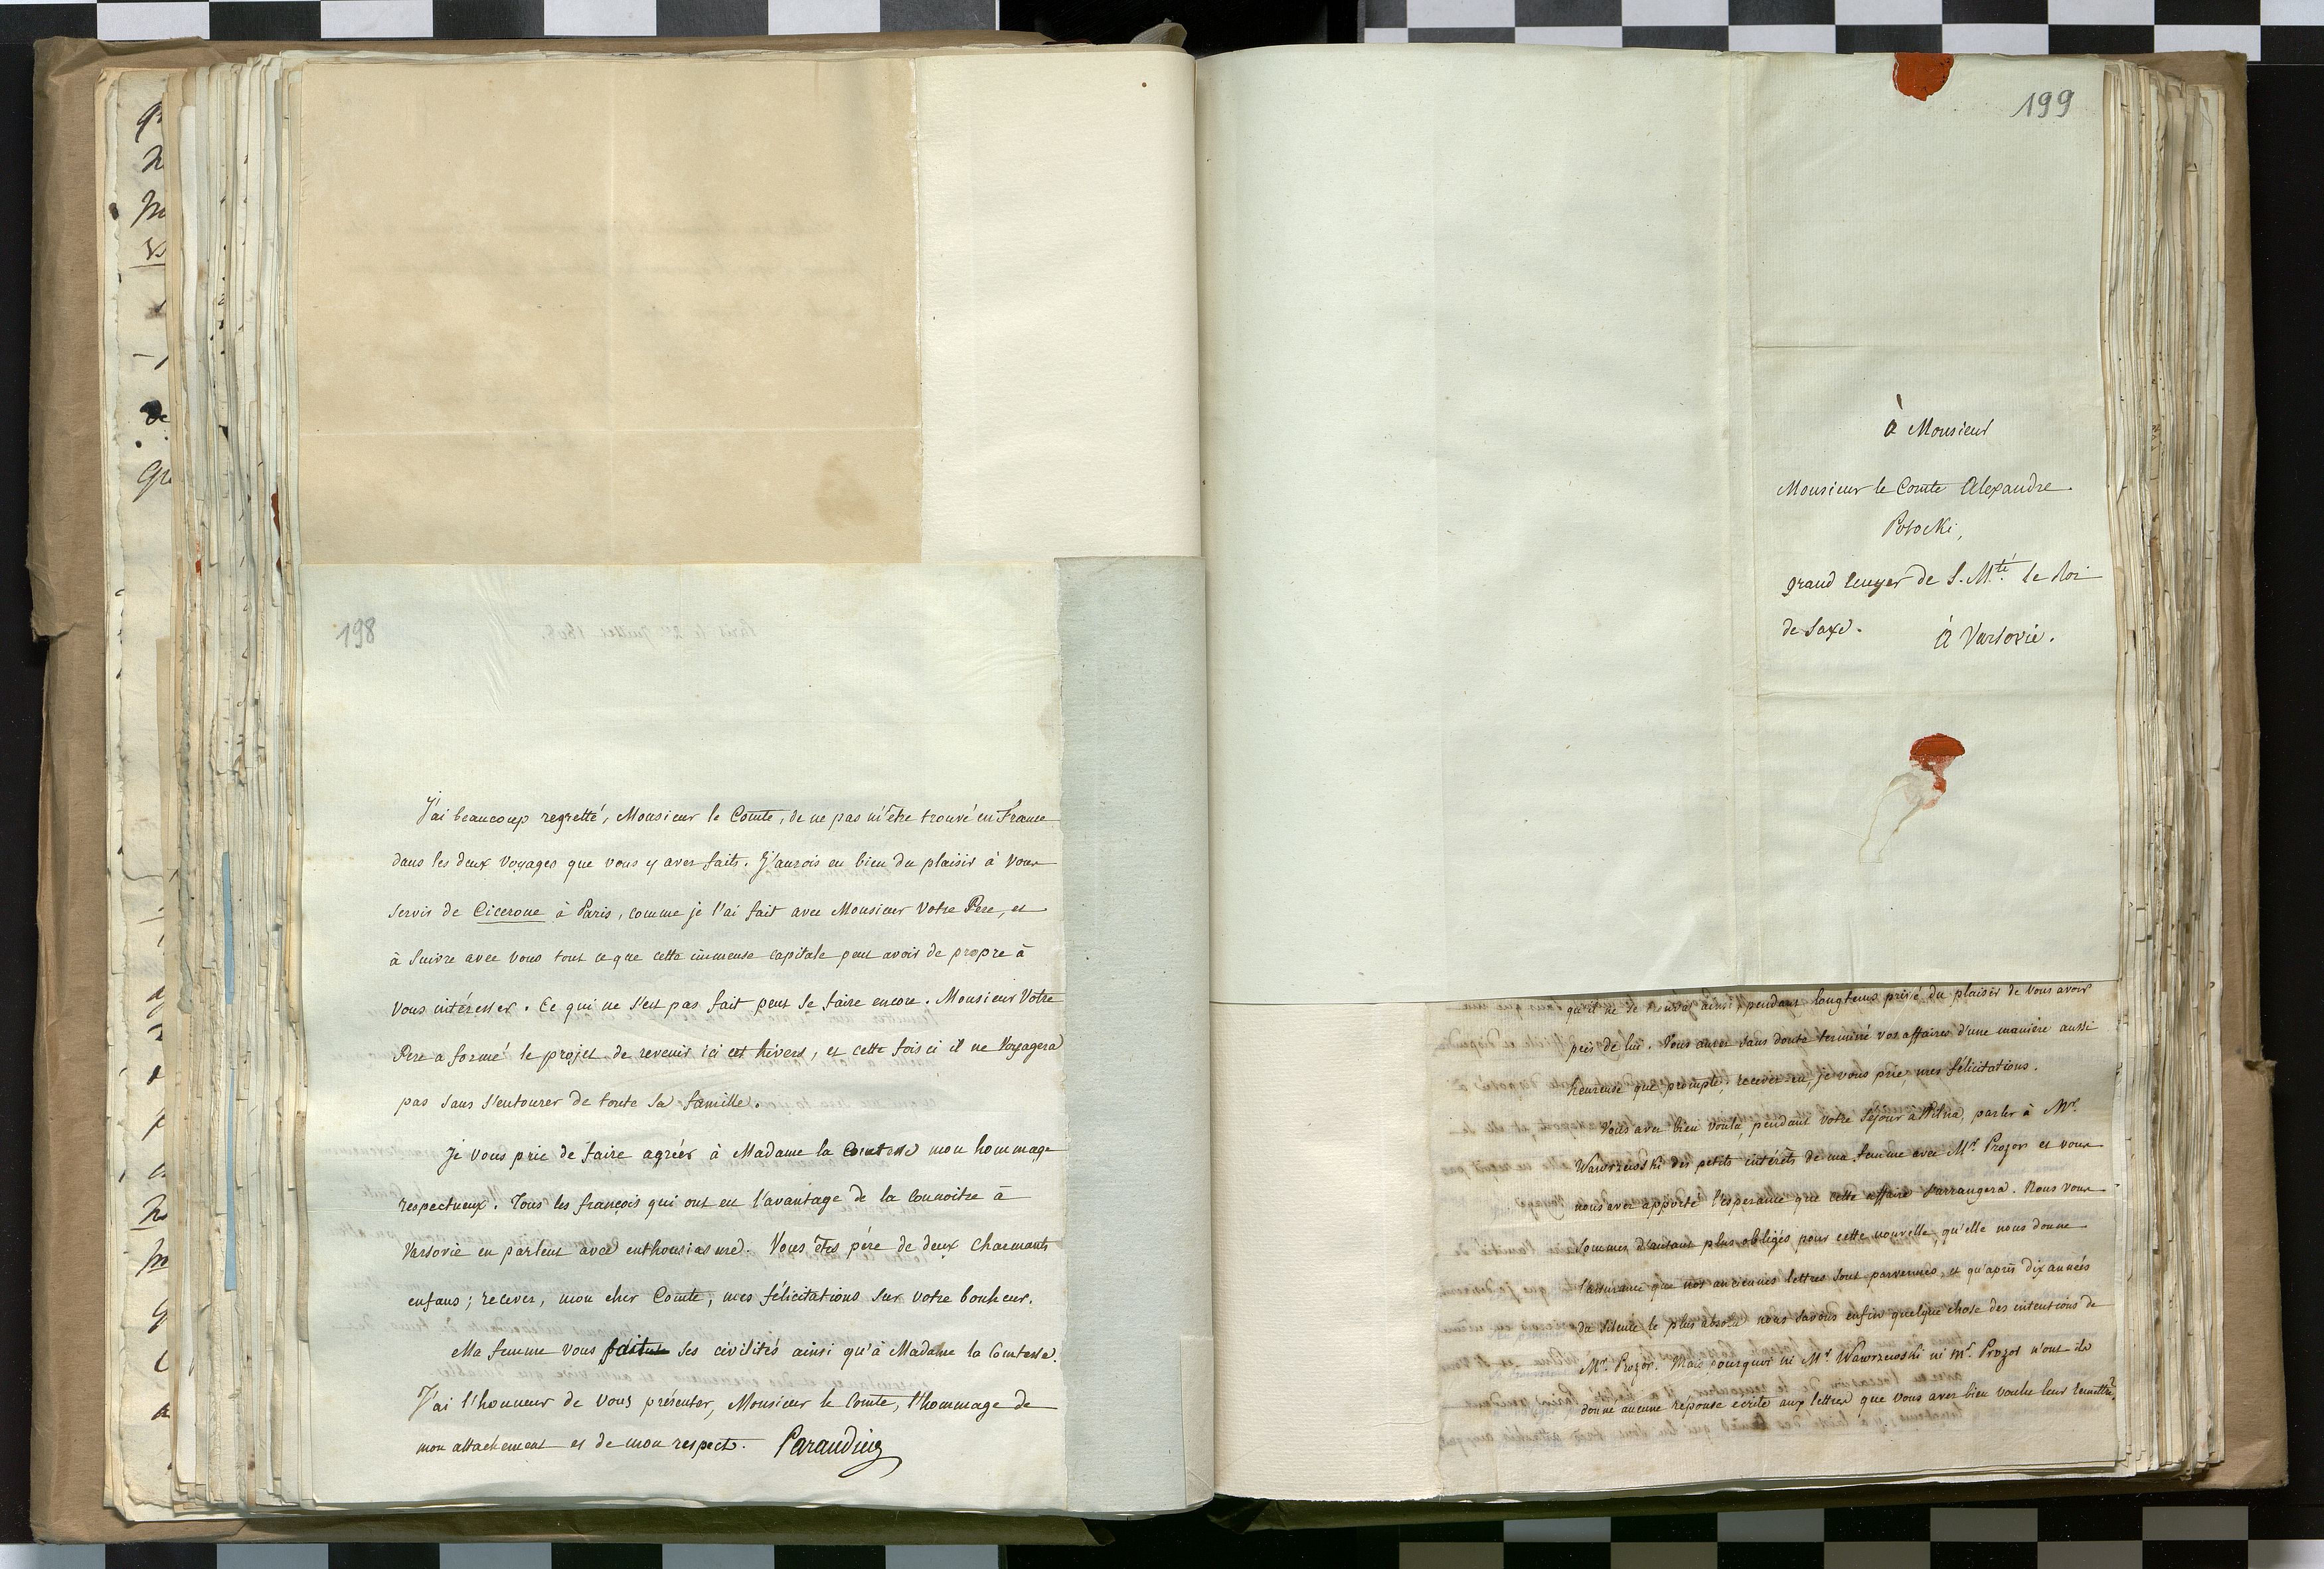 198
J'ai beaucoup regretté, Monsieur le Comte, de ne pas m'être trouvé en France
dans les deux voyages que vous y avez faits. J'aurois eu bien du plaisir à vous
servir de Cicerone à Paris, comme je l'ai fait avec Monsieur votre Pere, et
à suivre avec vous tout ce que cette immense capitale peut avoir de propre à
vous intéresser. Ce qui ne s'est pas fait peut se faire encore. Monsieur Votre
Pere a formé le projet de revenir ici cet hivers, et cette fois ci il ne Voyagera
pas sans s'entourer de toute sa famille.
Je vous prie de faire agréer à Madame la Comtesse mon hommage
respectueux. Tous les françois qui ont eu l'avantage de la connoitre à
Varsovie en parlent avec enthousiasme. Vous êtes père de deux charmants
enfans; recevez, mon cher Comte, mes félicitations sur votre bonheur.
Ma femme vous fait ses civilités ainsi qu'à Madame la Comtesse.
J'ai l'honneur de vous présenter, Monsieur le Comte, l'hommage de
mon attachement et de mon respect. Parandier
199
à Monsieur
Monsieur le Comte Alexandre
Potocki,
grand Ecuyer de S. Mté le Roi
de Saxe. à Varsovie.
qu'il ne se trouvât ainsi pendant longtems privé du plaisir de vous avoir
près de lui. Vous aurez sans doute terminé vos affaires d'une manière aussi
heureuse que prompte; recevez-en, je vous prie, mes félicitations.
Vous avez bien voulu, pendant votre séjour à Wilna, parler à Mr.
Wawrzewski des petits intérêts de ma femme avec Mr. Prozor et vous
nous avez apporté l'espérance que cette affaire s'arrangera. Nous vous
sommes d'autant plus obligés pour cette nouvelle, qu'elle nous donne
l'assurance que nos anciennes lettres sont parvenues, et qu'après dix années
du silence le plus absolu nous savons enfin quelque chose des intentions de
Mr. Prozor. Mais pourquoi ni Mr. Wawrzewski ni mr. Prozor n'ont ils
donné aucune réponse ecrite aux lettres que vous avez bien voulu leur remettre?